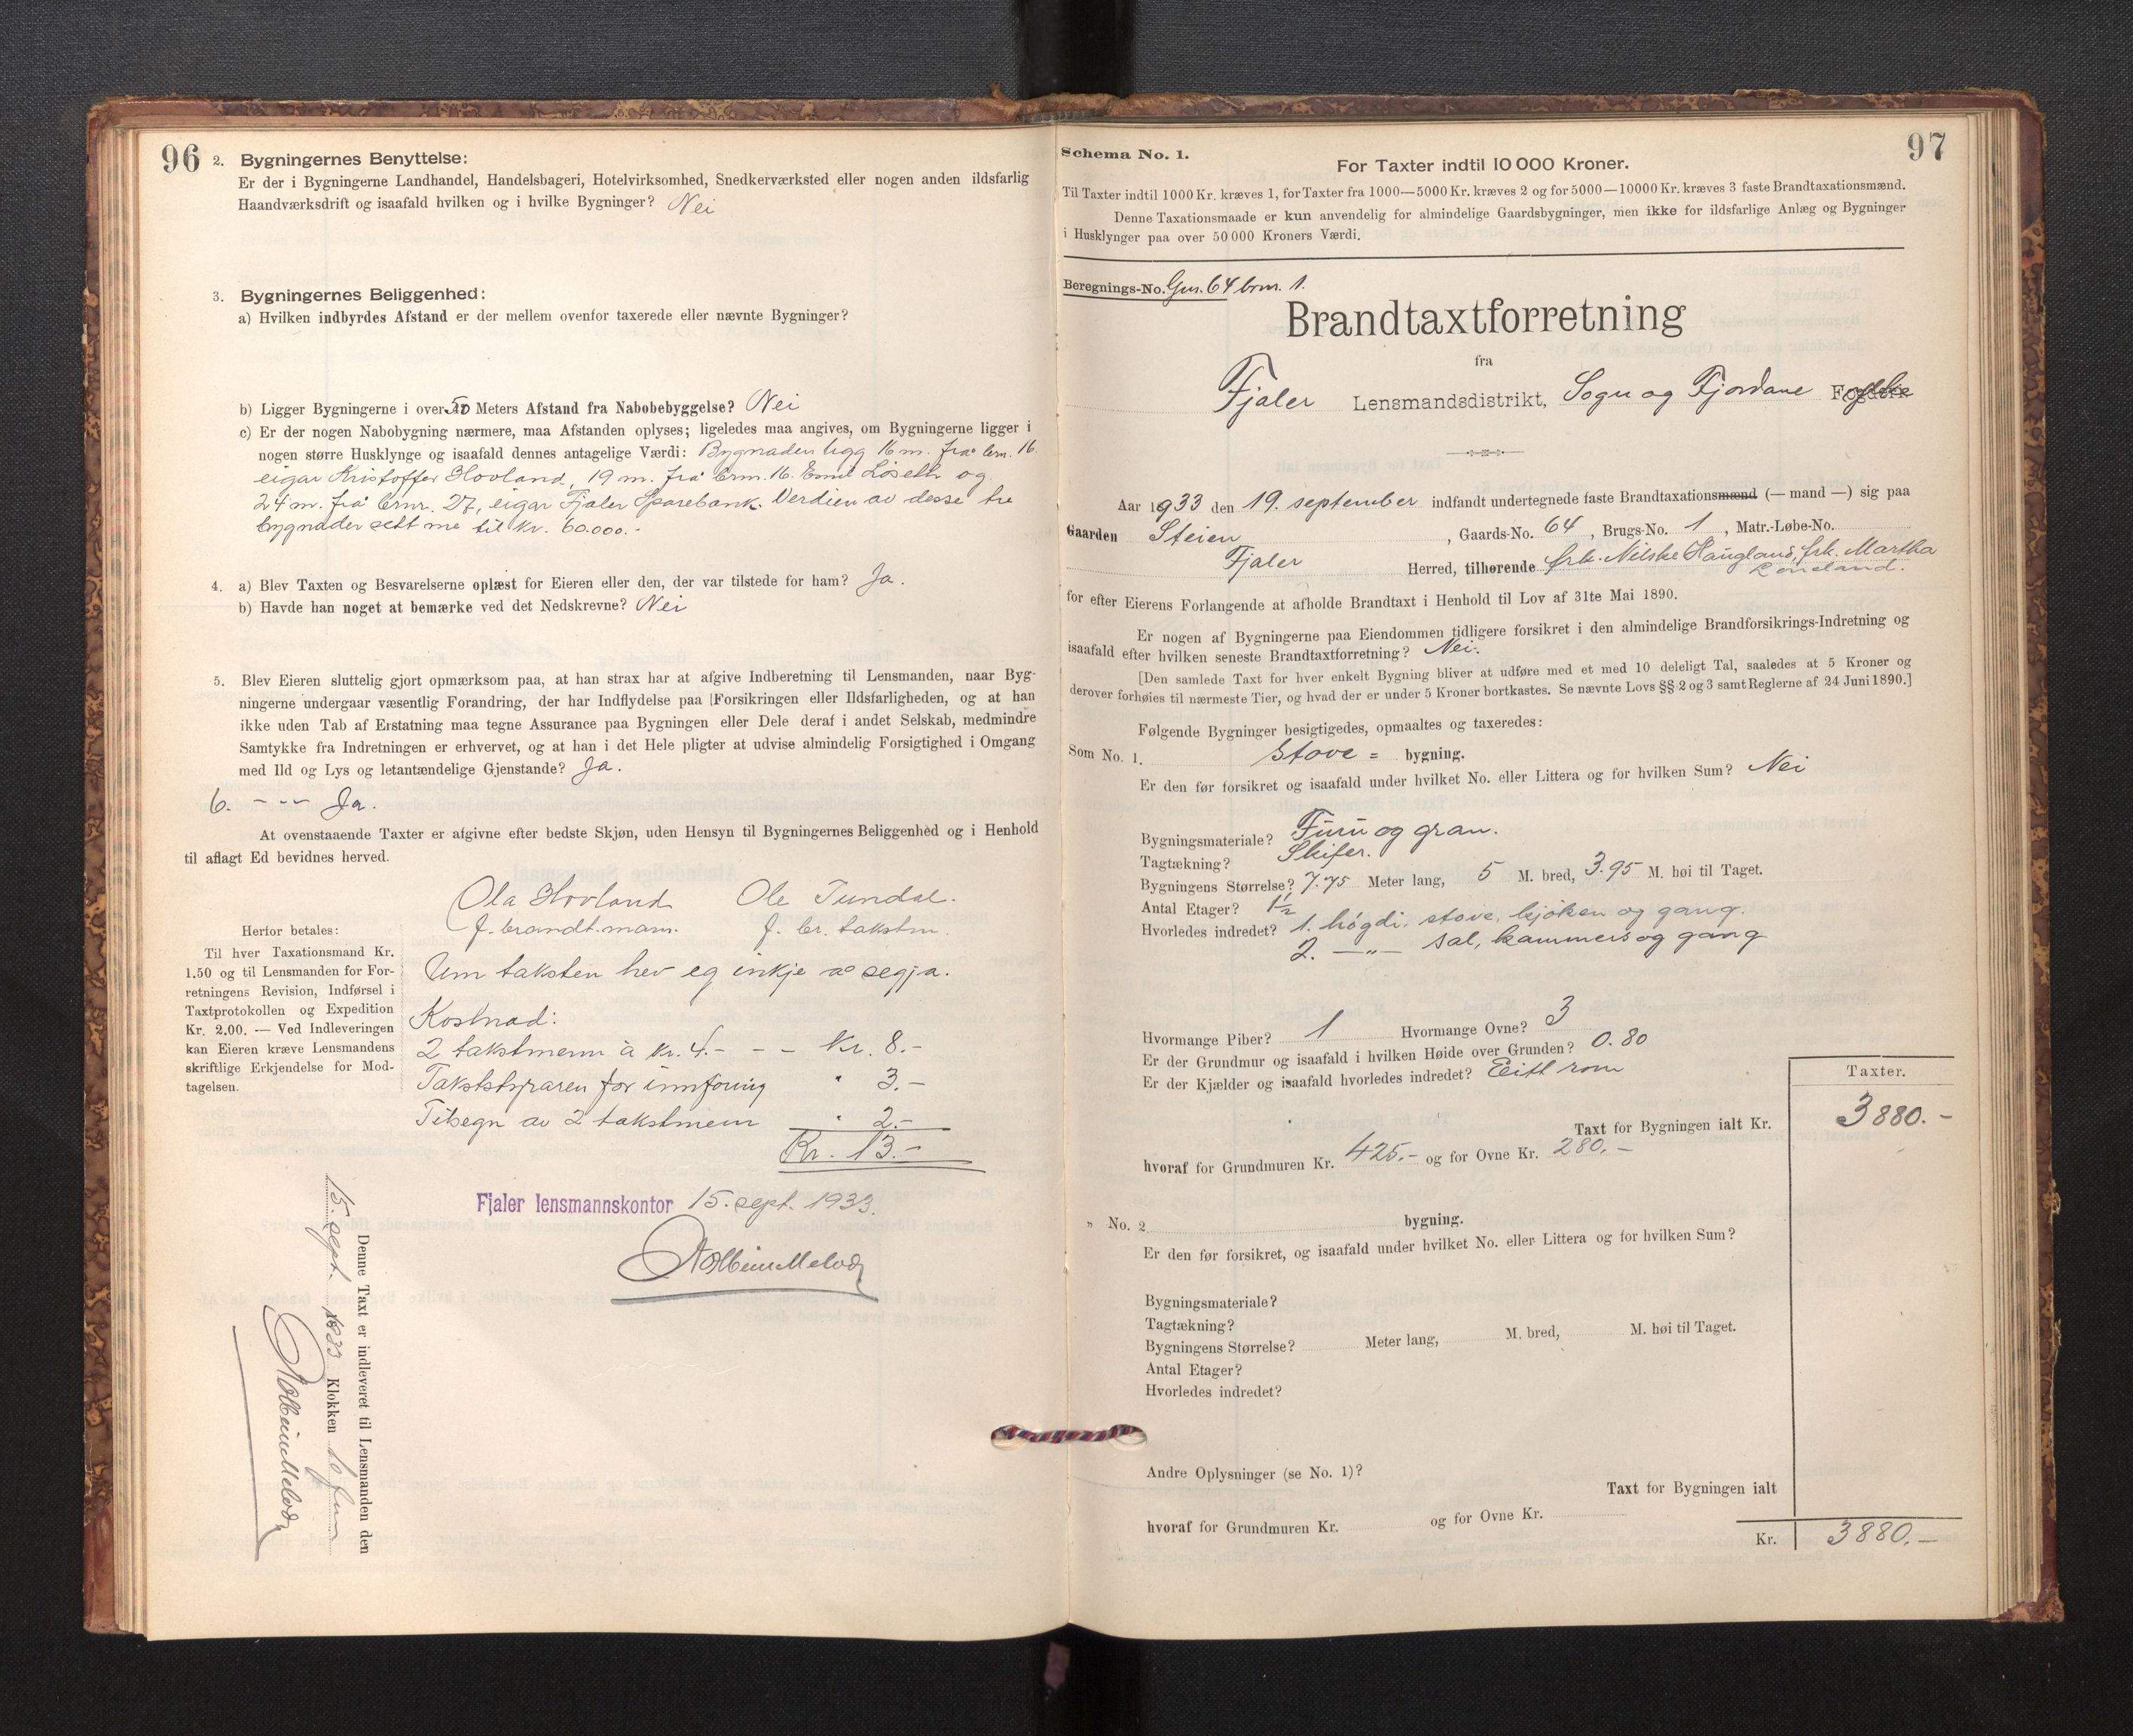 96
2. Bygningernes Benyttelse:
Er der i Bygningerne Landhandel, Handelsbageri, Hotelvirksomhed, Snedkerværksted eller nogen anden ildsfarlig
Haandværksdrift og isaafald hvilken og i hvilke Bygninger? Nei
3. Bygningernes Beliggenhed:
a) Hvilken indbyrdes Afstand er der mellem ovenfor taxerede eller nævnte Bygninger?
b) Ligger Bygningerne i over 50 Meters Afstand fra Nabobebyggelse? Nei
c) Er der nogen Nabobygning nærmere, maa Afstanden oplyses; ligeledes maa angives, om Bygningerne ligger i
nogen større Husklynge og isaafald dennes antagelige Værdi: Bygnaden ligg 16 m. frå brn. 16.
eigar Kristoffer Hovland, 19 m. frå brn. 16. Emil Løseth og
24 m. frå brnr. 27, eigar Fjaler Sparebank. Verdien av desse tre
bygnader sett me til kr. 60.000.-
4. a) Blev Taxten og Besvarelserne oplæst for Eieren eller den, der var tilstede for ham? Ja.
b) Havde han noget at bemærke ved det Nedskrevne? Nei
5. Blev Eieren sluttelig gjort opmærksom paa, at han strax har at afgive Indberetning til Lensmanden, naar Byg-
ningerne undergaar væsentlig Forandring, der har Indflydelse paa Forsikringen eller Ildsfarligheden, og at han
ikke uden Tab af Erstatning maa tegne Assurance paa Bygningen eller Dele deraf i andet Selskab, medmindre
Samtykke fra Indretningen er erhvervet, og at han i det Hele pligter at udvise almindelig Forsigtighed i Omgang
med Ild og Lys og letantændelige Gjenstande? Ja.
6. - -"- Ja.
At ovenstaaende Taxter er afgivne efter bedste Skjøn, uden Hensyn til Bygningernes Beliggenhed og i Henhold
til aflagt Ed bevidnes herved.
Ola Hovland Ole Tundal.
f. brandt.mann. f. br. takstm.
Herfor betales:
Til hver Taxationsmand Kr.
1.50 og til Lensmanden for For-
retningens Revision, Indførsel i
Taxtprotokollen og Expedition
Kr. 2.00. — Ved Indleveringen
kan Eieren kræve Lensmandens
skriftlige Erkjendelse for Mod-
tagelsen.
Um taksten hev eg inkje å segja.
Kostnad:
2 takstmenn à kr. 4.- - - Kr. 8.-
Takststyraren for innføring " 3.-
Tilsegn av 2 takstmenn " 2.-
Kr. 13.-
Fjaler lensmannskontor 15. sept. 1933.
Denne Taxt er indleveret til Lensmanden den
15. sept. 1933 Klokken 10 fm
97
Schema No. 1.
For Taxter indtil 10 000 Kroner.
Til Taxter indtil 1000 Kr. kræves 1, for Taxter fra 1000—5000 Kr. kræves 2 og for 5000—10000 Kr. kræves 3 faste Brandtaxationsmænd.
Denne Taxationsmaade er kun anvendelig for almindelige Gaardsbygninger, men ikke for ildsfarlige Anlæg og Bygninger
i Husklynger paa over 50 000 Kroners Værdi.
Beregnings-No. Gnr. 64 brnr. 1.
Brandtaxtforretning
fra
Fjaler Lensmandsdistrikt, Sogn og Fjordane Fogderi
Aar 1933 den 19. september indfandt undertegnede faste Brandtaxationsmænd (— mand —) sig paa
Gaarden Steien, Gaards-No. 64, Brugs-No. 1, Matr.-Løbe-No.
Fjaler Herred, tilhørende frk. Nilske Haugland, frk. Martha
Røneland.
for efter Eierens Forlangende at afholde Brandtaxt i Henhold til Lov af 31te Mai 1890.
Er nogen af Bygningerne paa Eiendommen tidligere forsikret i den almindelige Brandforsikrings-Indretning og
isaafald efter hvilken seneste Brandtaxtforretning? Nei.
[Den samlede Taxt for hver enkelt Bygning bliver at udføre med et med 10 deleligt Tal, saaledes at 5 Kroner og
derover forhøies til nærmeste Tier, og hvad der er under 5 Kroner bortkastes. Se nævnte Lovs §§ 2 og 3 samt Reglerne af 24 Juni 1890.]
Følgende Bygninger besigtigedes, opmaaltes og taxeredes:
Som No. 1. Stove = bygning.
Er den før forsikret og isaafald under hvilket No. eller Littera og for hvilken Sum? Nei
Bygningsmateriale? Furu og gran.
Tagtækning? Skifer.
Bygningens Størrelse? 7.75 Meter lang, 5 M. bred, 3.95 M. høi til Taget.
Antal Etager? 1½
Hvorledes indredet? 1. høgdi: stove, kjøken og gang.
2. —"— sal, kammers og gang
Hvormange Piber? 1 Hvormange Ovne? 3
Er der Grundmur og isaafald i hvilken Høide over Grunden? 0.80
Er der Kjælder og isaafald hvorledes indredet? Eitt rom
Taxter.
Taxt for Bygningen ialt Kr. 3880.-
hvoraf for Grundmuren Kr. 425.- og for Ovne Kr. 280.-
" No. 2 bygning.
Er den før forsikret, og isaafald under hvilket No. eller Littera og for hvilken Sum?
Bygningsmateriale?
Tagtækning?
Bygningens Størrelse? Meter lang, M. bred, M. høi til Taget.
Antal Etager?
Hvorledes indredet?
Andre Oplysninger (se No. 1)?
Taxt for Bygningen ialt
hvoraf for Grundmuren Kr. og for Ovne Kr.
Kr. 3880.-